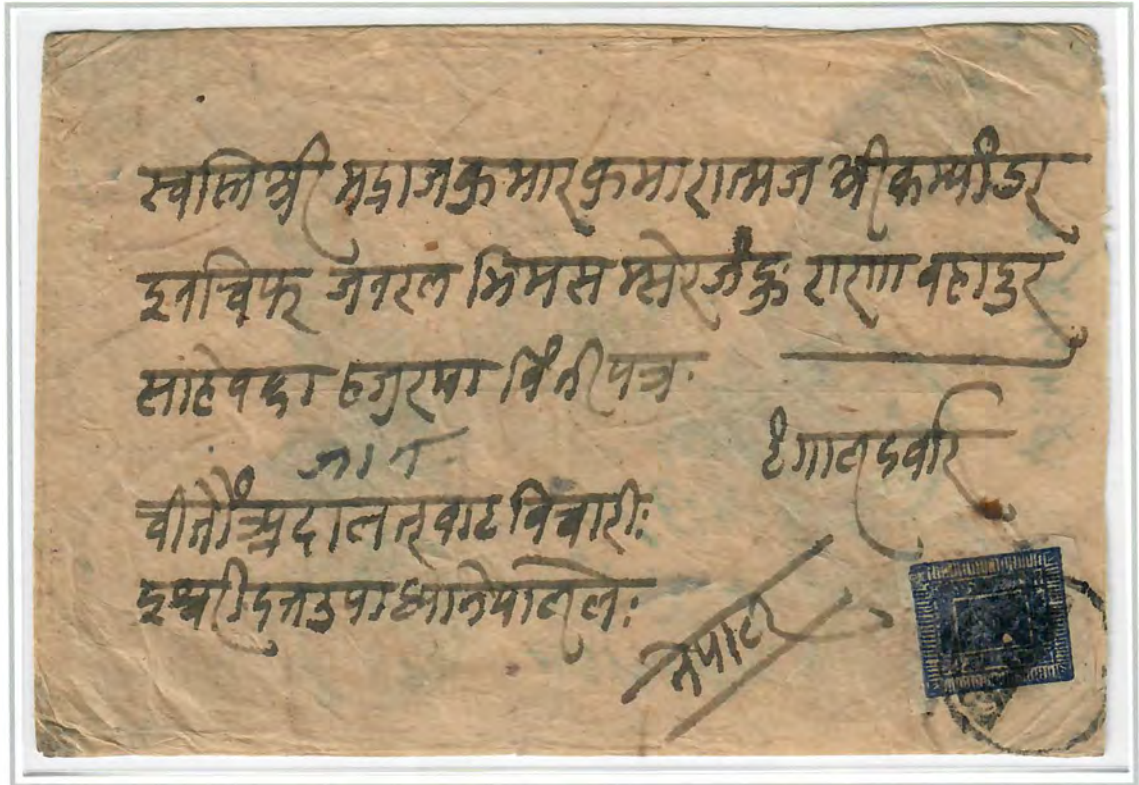 स्वस्तिश्री मद्राजकुमार कुमारात्मज श्री कम्याँडर
इनचिफ् जनरल भिमसम्सेर जङ्ग राणा वहादुर
साहेवका हजुरमा विंतीपत्र
टंगालदर्वार
चीतौं अदालत् वाट विचारी
इश्वरीदत्त उपाध्या नेपालले
नेपाल